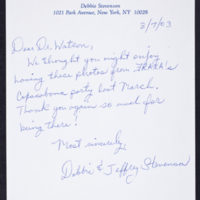 Debbie Stevenson
1021 Park Avenue, New York, NY 10028
3/7/03
Dear Dr. Watson,
We thought you might enjoy
having these photos from
Copacabana party last March.
Thank you again so much for
being there!
Most sincerely,
Debbie & Jeffrey Stevenson